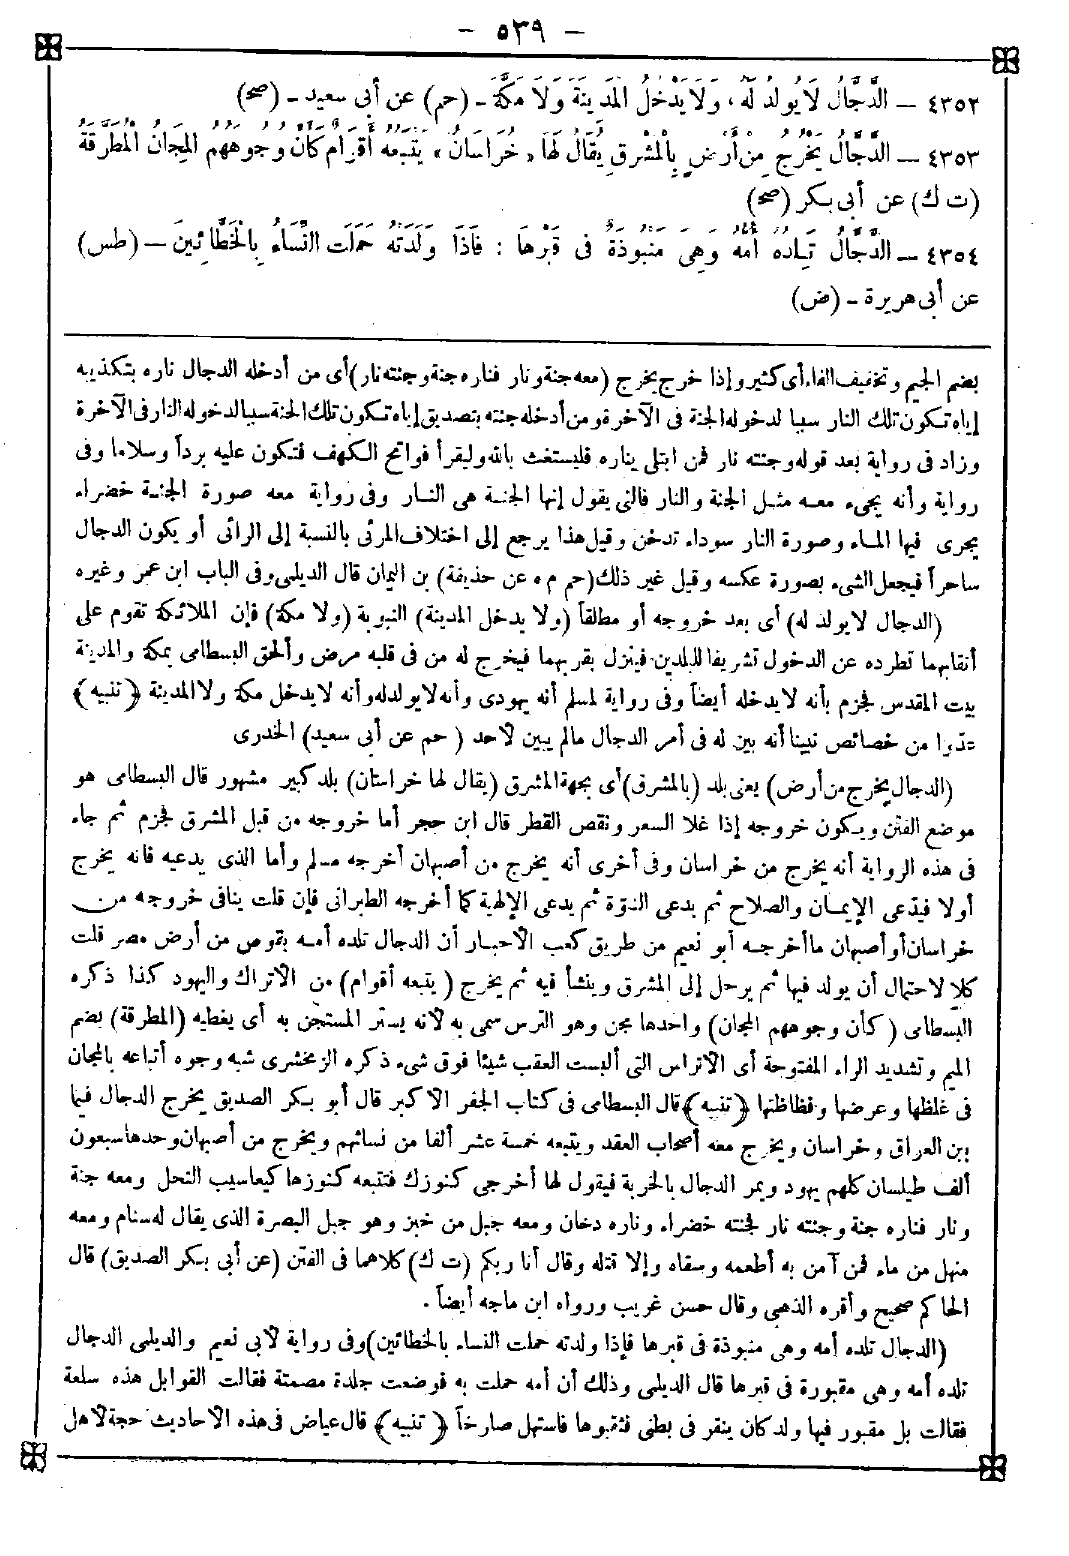 - ٥٣٩ -
٤٣٥٢ - الدَّجَّالُ لَا يُولَدُ لَهُ، وَلَا يَدْخُلُ المَدِينَةَ وَلَا مَكَّةَ - (حم) عن أبى سعيد - (صح)
٤٣٥٣ - الدَّجَّالُ يَخْرُجُ مِنْ أَرْضٍ بِالْمَشْرِقِ يُقَالُ لَهَا «خُرَاسَانُ» يَتْبَعُهُ أَقْوَامٌ كَأَنَّ وُجُوهَهُمُ المَجَانُّ الْمُطَرَّقَةُ
(ت ك) عن أبى بكر (صح)
٤٣٥٤ - الدَّجَّالُ تَلِدُهُ أُمُّهُ وَهِىَ مَنْبُوذَةٌ فى قَبْرِهَا : فَاذَا وَلَدَتْهُ حَمَلَتِ النِّسَاءُ بِالْخَطَّائِينَ - (طس)
عن أبى هريرة - (ض)
بضم الجيم وتخفيف الفاء أى كثير وإذا خرج يخرج (معه جنة ونار فناره جنة وجنته نار) أى من أدخله الدجال ناره بتكذيبه
إياه تكون تلك النار سببا لدخوله الجنة فى الآخرة ومن أدخله جنته بتصديق إياه تكون تلك الجنة سببا لدخوله النار فى الآخرة
وزاد فى رواية بعد قوله وجنته نار فمن ابتلى بناره فليستغث بالله وليقرأ فواتح الكهف فتكون عليه برداً وسلاما وفى
رواية وأنه يجىء معه مثل الجنة والنار فالتى يقول إنها الجنة هى النار وفى رواية معه صورة الجنة خضراء
يجرى فيها الماء وصورة النار سوداء تدخن وقيل هذا يرجع إلى اختلاف المرئى بالنسبة إلى الرائى أو يكون الدجال
ساحراً فيجعل الشىء بصورة عكسه وقيل غير ذلك (حم م ه عن حذيفة) بن اليمان قال الديلمى وفى الباب ابن عمر وغيره
(الدجال لا يولد له) أى بعد خروجه أو مطلقاً (ولا يدخل المدينة) النبوية (ولا مكة) فإن الملائكة تقوم على
أنقابهما تطرده عن الدخول تشريفا للبلدين فينزل بقربهما فيخرج له من فى قلبه مرض وألحق البسطامى بمكة والمدينة
بيت المقدس فجزم بأنه لا يدخله أيضاً وفى رواية لمسلم أنه يهودى وأنه لا يولد له وأنه لا يدخل مكة ولا المدينة ﴿تنبيه﴾
عدوا من خصائص نبينا أنه بين له فى أمر الدجال مالم يبين لأحد (حم عن أبى سعيد) الخدرى
(الدجال يخرج من أرض) يعنى بلد (بالمشرق) أى بجهة المشرق (يقال لها خراستان) بلد كبير مشهور قال البسطامى هو
موضع الفتن ويكون خروجه إذا غلا السعر ونقص القطر قال ابن حجر أما خروجه من قبل المشرق فجزم ثم جاء
فى هذه الرواية أنه يخرج من خراسان وفى أخرى أنه يخرج من أصبهان أخرجه مسلم وأما الذى يدعيه فانه يخرج
أولا فيدعى الإيمان والصلاح ثم يدعى النبوة ثم يدعى الإلهية كما أخرجه الطبرانى فإن قلت ينافى خروجه من
خراسان أو أصبهان ما أخرجه أبو نعيم من طريق كعب الأحبار أن الدجال تلده أمه بقوص من أرض مصر قلت
كلا لاحتمال أن يولد فيها ثم يرحل إلى المشرق وينشأ فيه ثم يخرج (يتبعه أقوام) من الأتراك واليهود كذا ذكره
البسطامى (كأن وجوههم المجان) واحدها مجن وهو الترس سمى به لأنه يستر المستجن به أى يغطيه (المطرقة) بضم
الميم وتشديد الراء المفتوحة أى الأتراس التى ألبست العقب شيئا فوق شىء ذكره الزمخشرى شبه وجوه أتباعه بالمجان
فى غلظها وعرضها وفظاظتها ﴿تنبيه﴾ قال البسطامى فى كتاب الجفر الأكبر قال أبو بكر الصديق يخرج الدجال فيما
بين العراق وخراسان ويخرج معه أصحاب العقد ويتبعه خمسة عشر ألفا من نسائهم ويخرج من أصبهان وحدها سبعون
ألف طيلسان كلهم يهود ويمر الدجال بالخربة فيقول لها أخرجى كنوزك فتتبعه كنوزها كيعاسيب النحل ومعه جنة
ونار فناره جنة وجنته نار فجنته خضراء وناره دخان ومعه جبل من خبز وهو جبل البصرة الذى يقال له سنام ومعه
منهل من ماء فمن آمن به أطعمه وسقاه وإلا قتله وقال أنا ربكم (ت ك) كلاهما فى الفتن (عن أبى بكر الصديق) قال
الحاكم صحيح وأقره الذهبى وقال حسن غريب ورواه ابن ماجه أيضاً .
(الدجال تلده أمه وهى منبوذة فى قبرها فإذا ولدته حملت النساء بالخطائين) وفى رواية لأبى نعيم والديلمى الدجال
تلده أمه وهى مقبورة فى قبرها قال الديلمى وذلك أن أمه حملت به فوضعت جلدة مصمتة فقالت القوابل هذه سلعة
فقالت بل مقبور فيها ولد كان ينقر فى بطنى فثقبوها فاستهل صارخاً ﴿تنبيه﴾ قال عياض فى هذه الأحاديث حجة لأهل